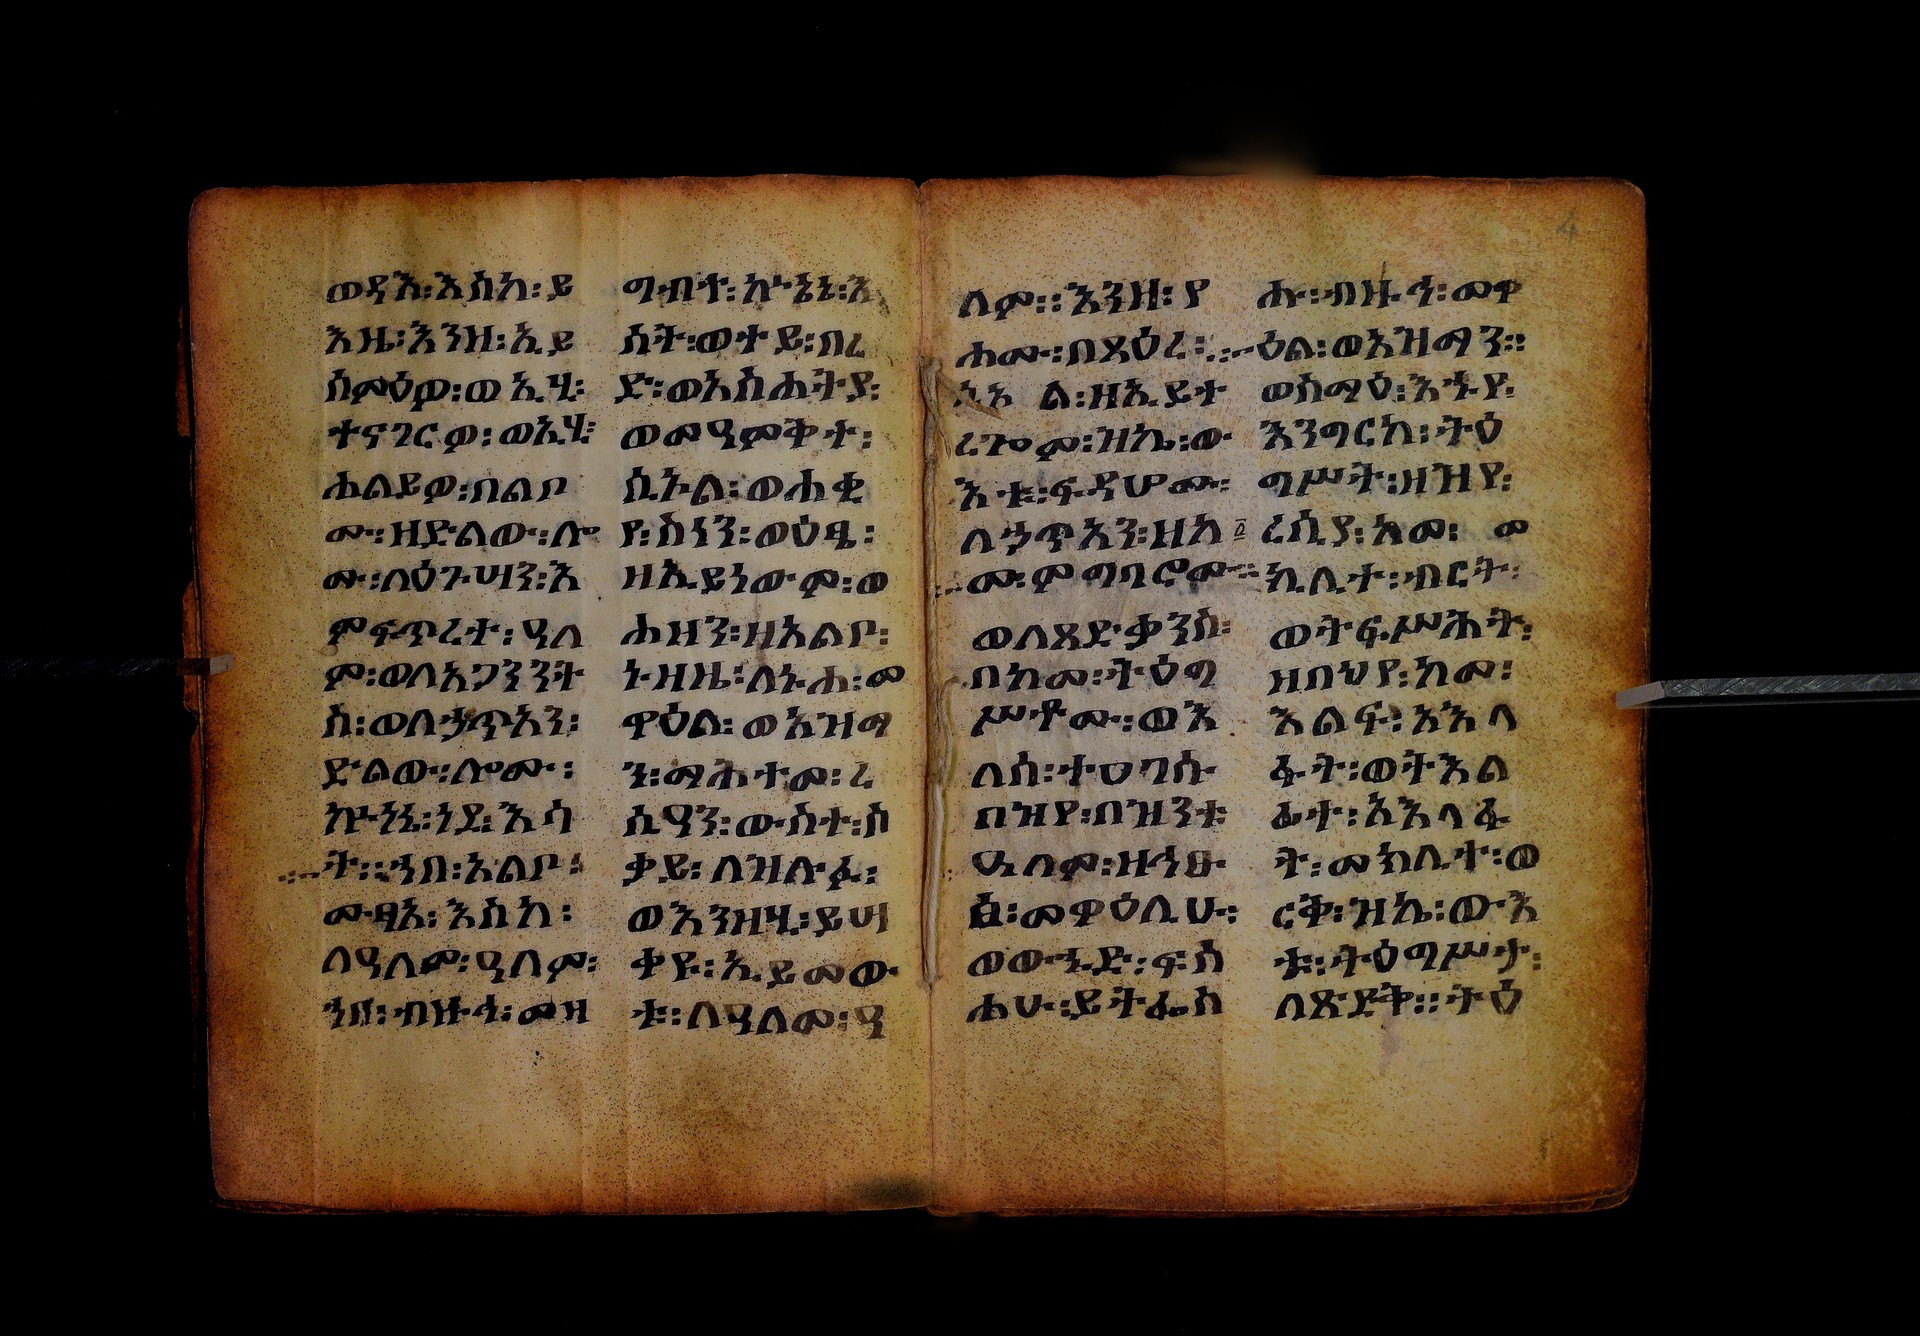 ወዳእ፡እስከ፡ይ
እዜ፡እንዘ፡ኢይ
ሰምዕዎ፡ወኢሂ፡
ተናገርዎ፡ወኢሂ፡
ሐልይዎ፡በልቦ
ሙ፡ዘድልው፡ሎ
ሙ፡ለዕጉሣን፡እ
ምፍጥረተ፡ዓለ
ም፡ወለአጋንንት
ስ፡ወለኃጥአን፡
ድልው፡ሎሙ፡
ኵነኔ፡ነደ፡እሳ
ት፡፡ኀበ፡አልቦ፡
ሙፃእ፡እስከ፡
ለዓለም፡ዓለም፡
ኀበ፡ብዙኅ፡መዘ
ግብተ፡ኵነኔ፡እ
ሰት፡ወተይ፡በረ
ድ፡ወአስሐትያ፡
ወመዓምቅተ፡
ሲኦል፡ወሐቂ
የ፡ስነን፡ወዕፄ፡
ዘኢይነውም፡ወ
ሐዘን፡ዘአልቦ፡
ኑዛዜ፡ለኑሐ፡መ
ዋዕል፡ወአዝማ
ን፡ማሕተመ፡ረ
ሲዓን፡ውስተ፡ሰ
ቃይ፡ለዝሉፉ፡
ወእንዘሂ፡ይሣ
ቀዩ፡ኢይመው
ቱ፡ለዓለመ፡ዓ
ለም፡፡እንዘ፡የ
ሐሙ፡በጻዕረ፡
ል፡ዘኢይተ
ረጐም፡ዝኬ፡ው
እቱ፡ፍዳሆሙ፡
ለኃጥአን፡ዘአ
ሙ፡ምግባሮሙ፡
ወለጻድቃንሰ፡
በከመ፡ትዕግ
ሥቶሙ፡ወእ
ለሰ፡ተዐገሱ
በዝየ፡በዝንቱ
ዓለም፡ዘኅፁ
ፅ፡መዋዕሊሁ፡
ወውኁድ፡ፍስ
ሐሁ፡ይትፌስ
ሑ፡ብዙኅ፡መዋ
ዕል፡ወአዝማን፡፡
ወስማዕ፡እኁየ፡
እንግርከ፡ትዕ
ግሥት፡ዘዝየ፡
ረሲያ፡አመ፡ መ
ክሊተ፡ብርት፡
ወትፍሥሕት፡
ዘበህየ፡ከመ፡
እልፍ፡አእላ
ፋት፡ወትእል
ፊተ፡አእላፋ
ት፡መክሊተ፡ወ
ርቅ፡ዝኬ፡ውእ
ቱ፡ትዕግሥታ፡
ለጽድቅ፡፡ትዕ